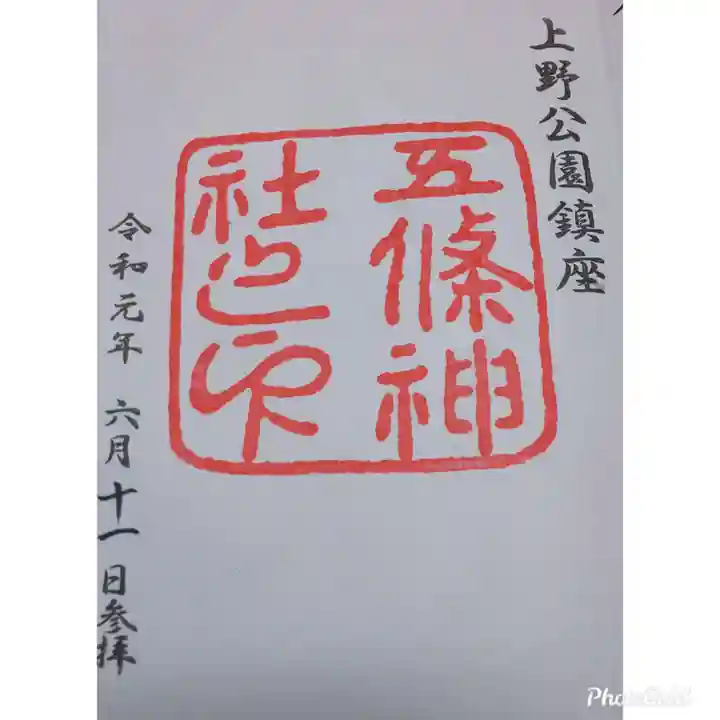 上野公園鎮座
五條神
社之印
令和元年 六月十一日参拝
PhotoGrid